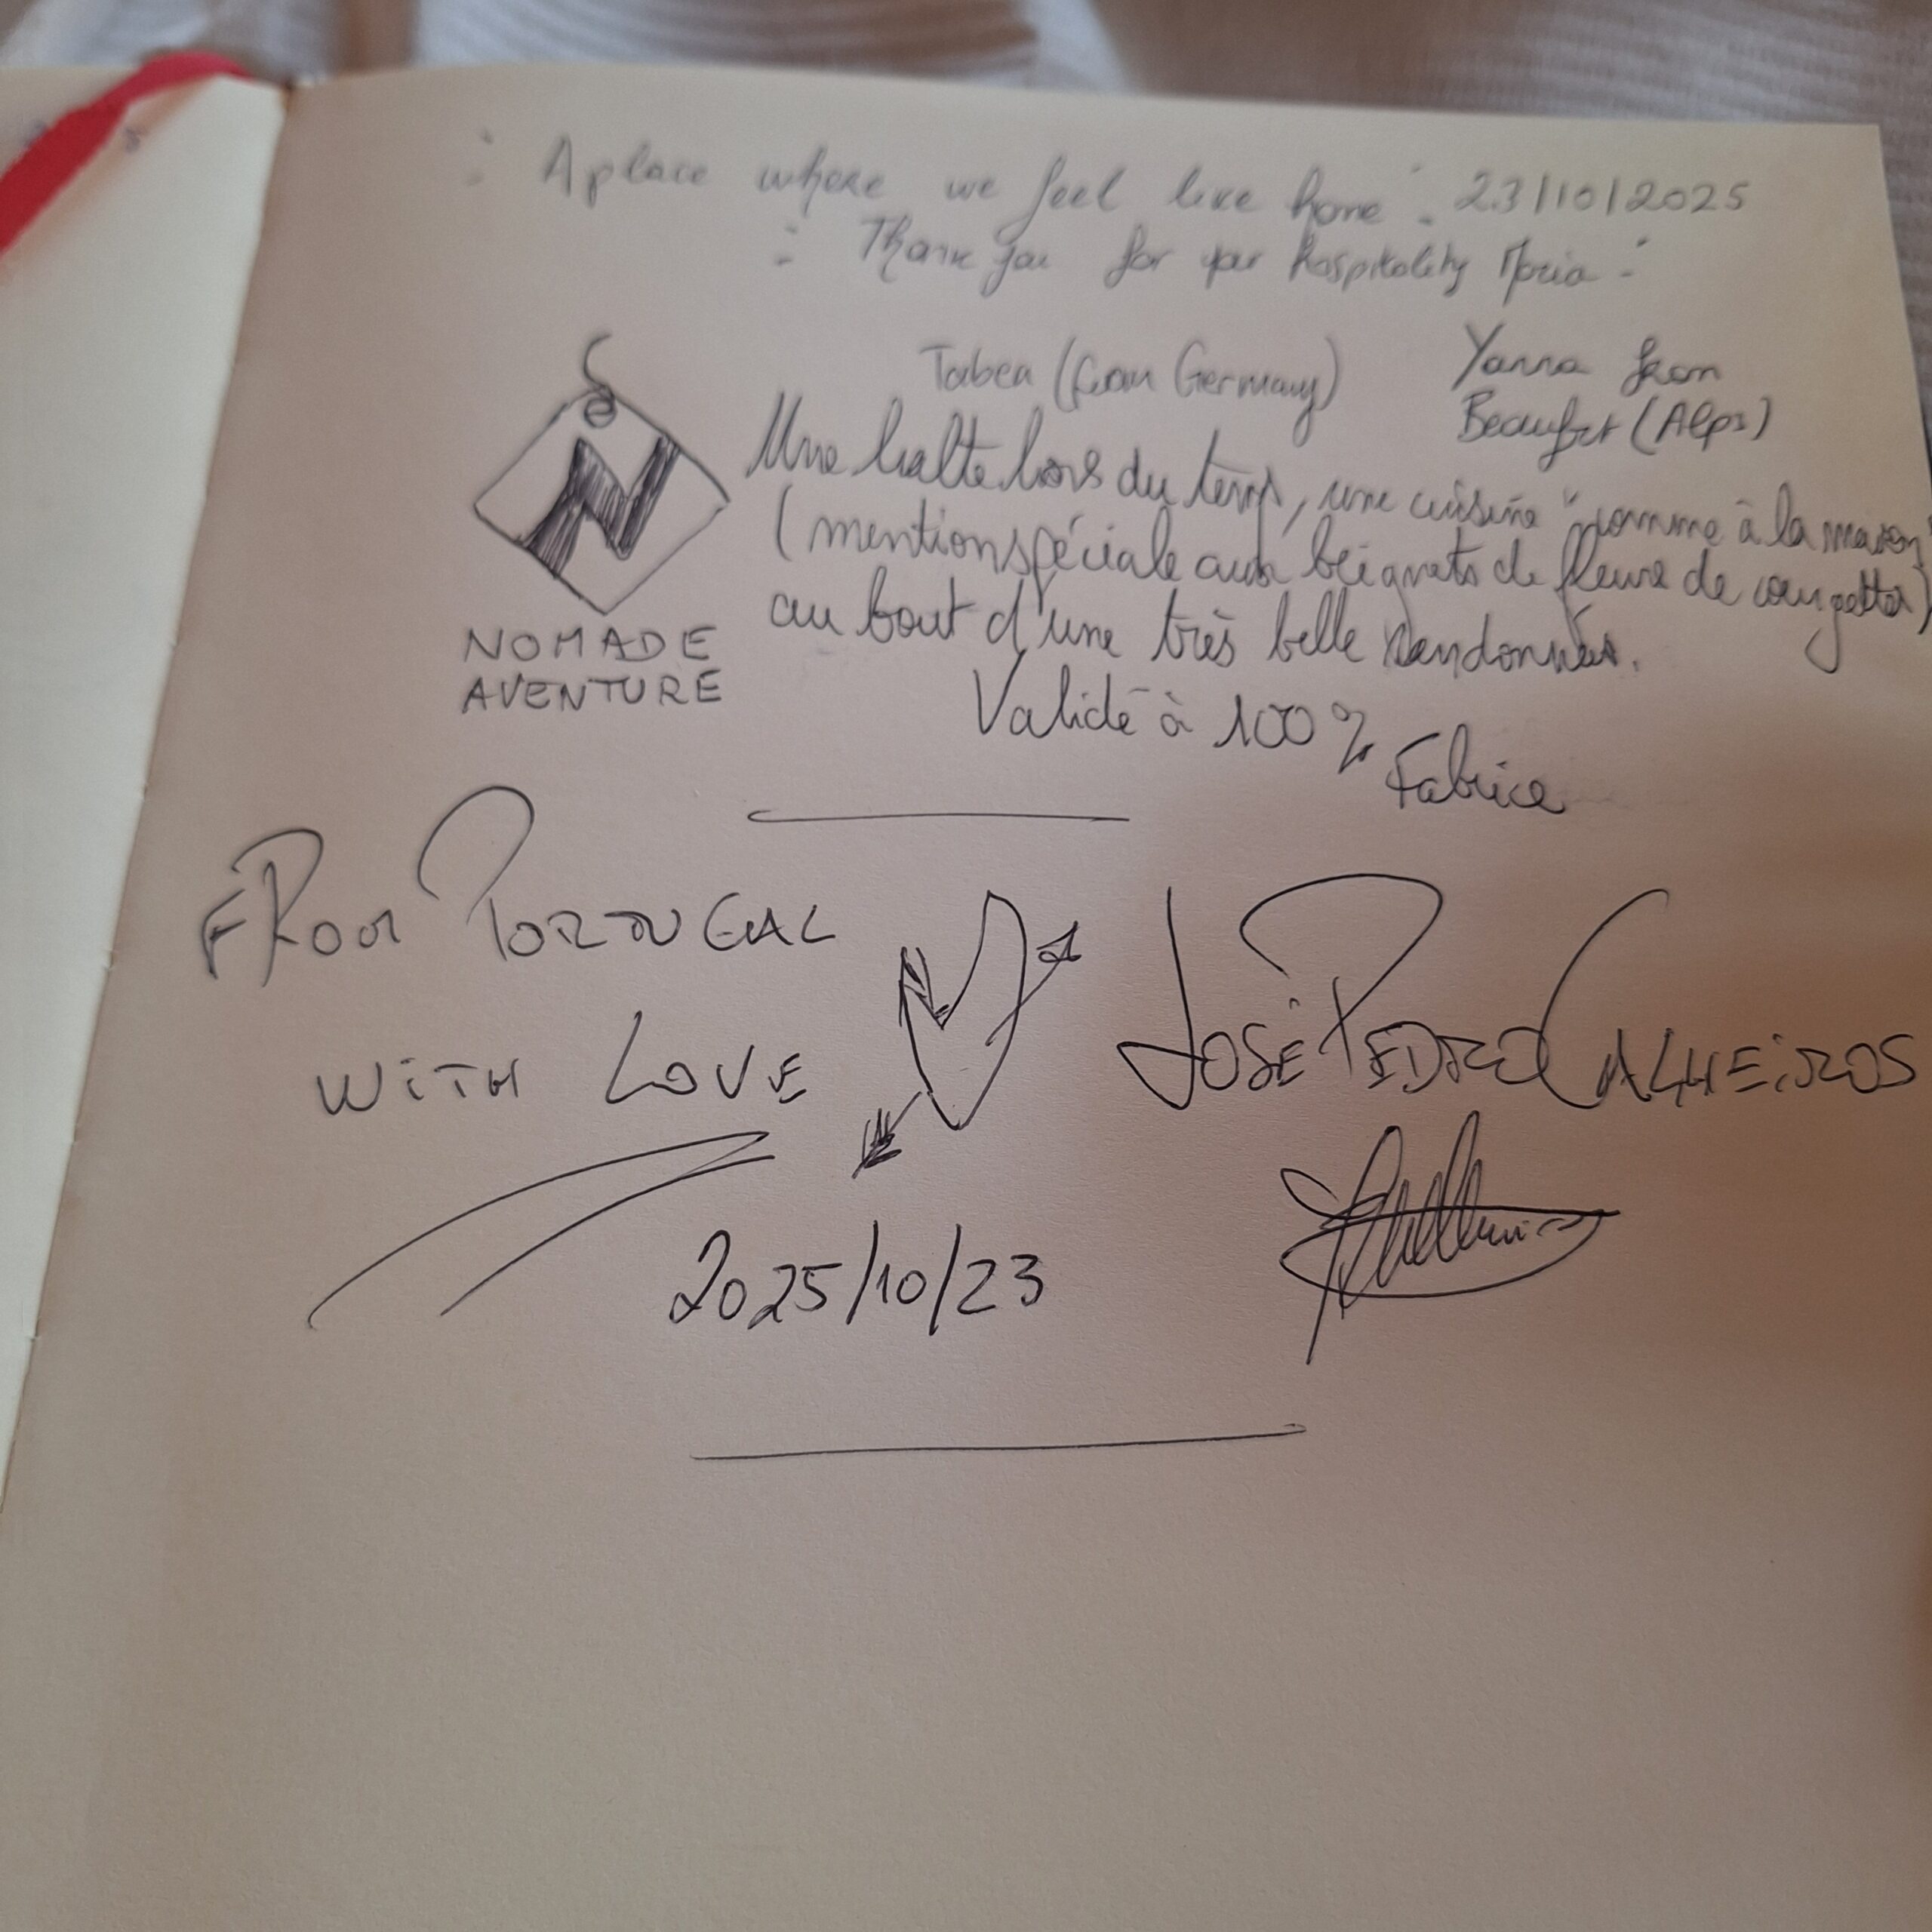 A place where we feel like home. 23/10/2025
Thank you for your hospitality Maria
Tabea (from Germany)
Yanna from
Beaufort (Alps)
Une halte hors du temps, une cuisine "comme à la maison"
(mention spéciale aux beignets de fleurs de courgettes)
au bout d'une très belle randonnée.
Validé à 100%
Fabrice
N
NOMADE
AVENTURE
FROM PORTUGAL
WITH LOVE
JOSÉ PEDRO CALHEIROS
2025/10/23